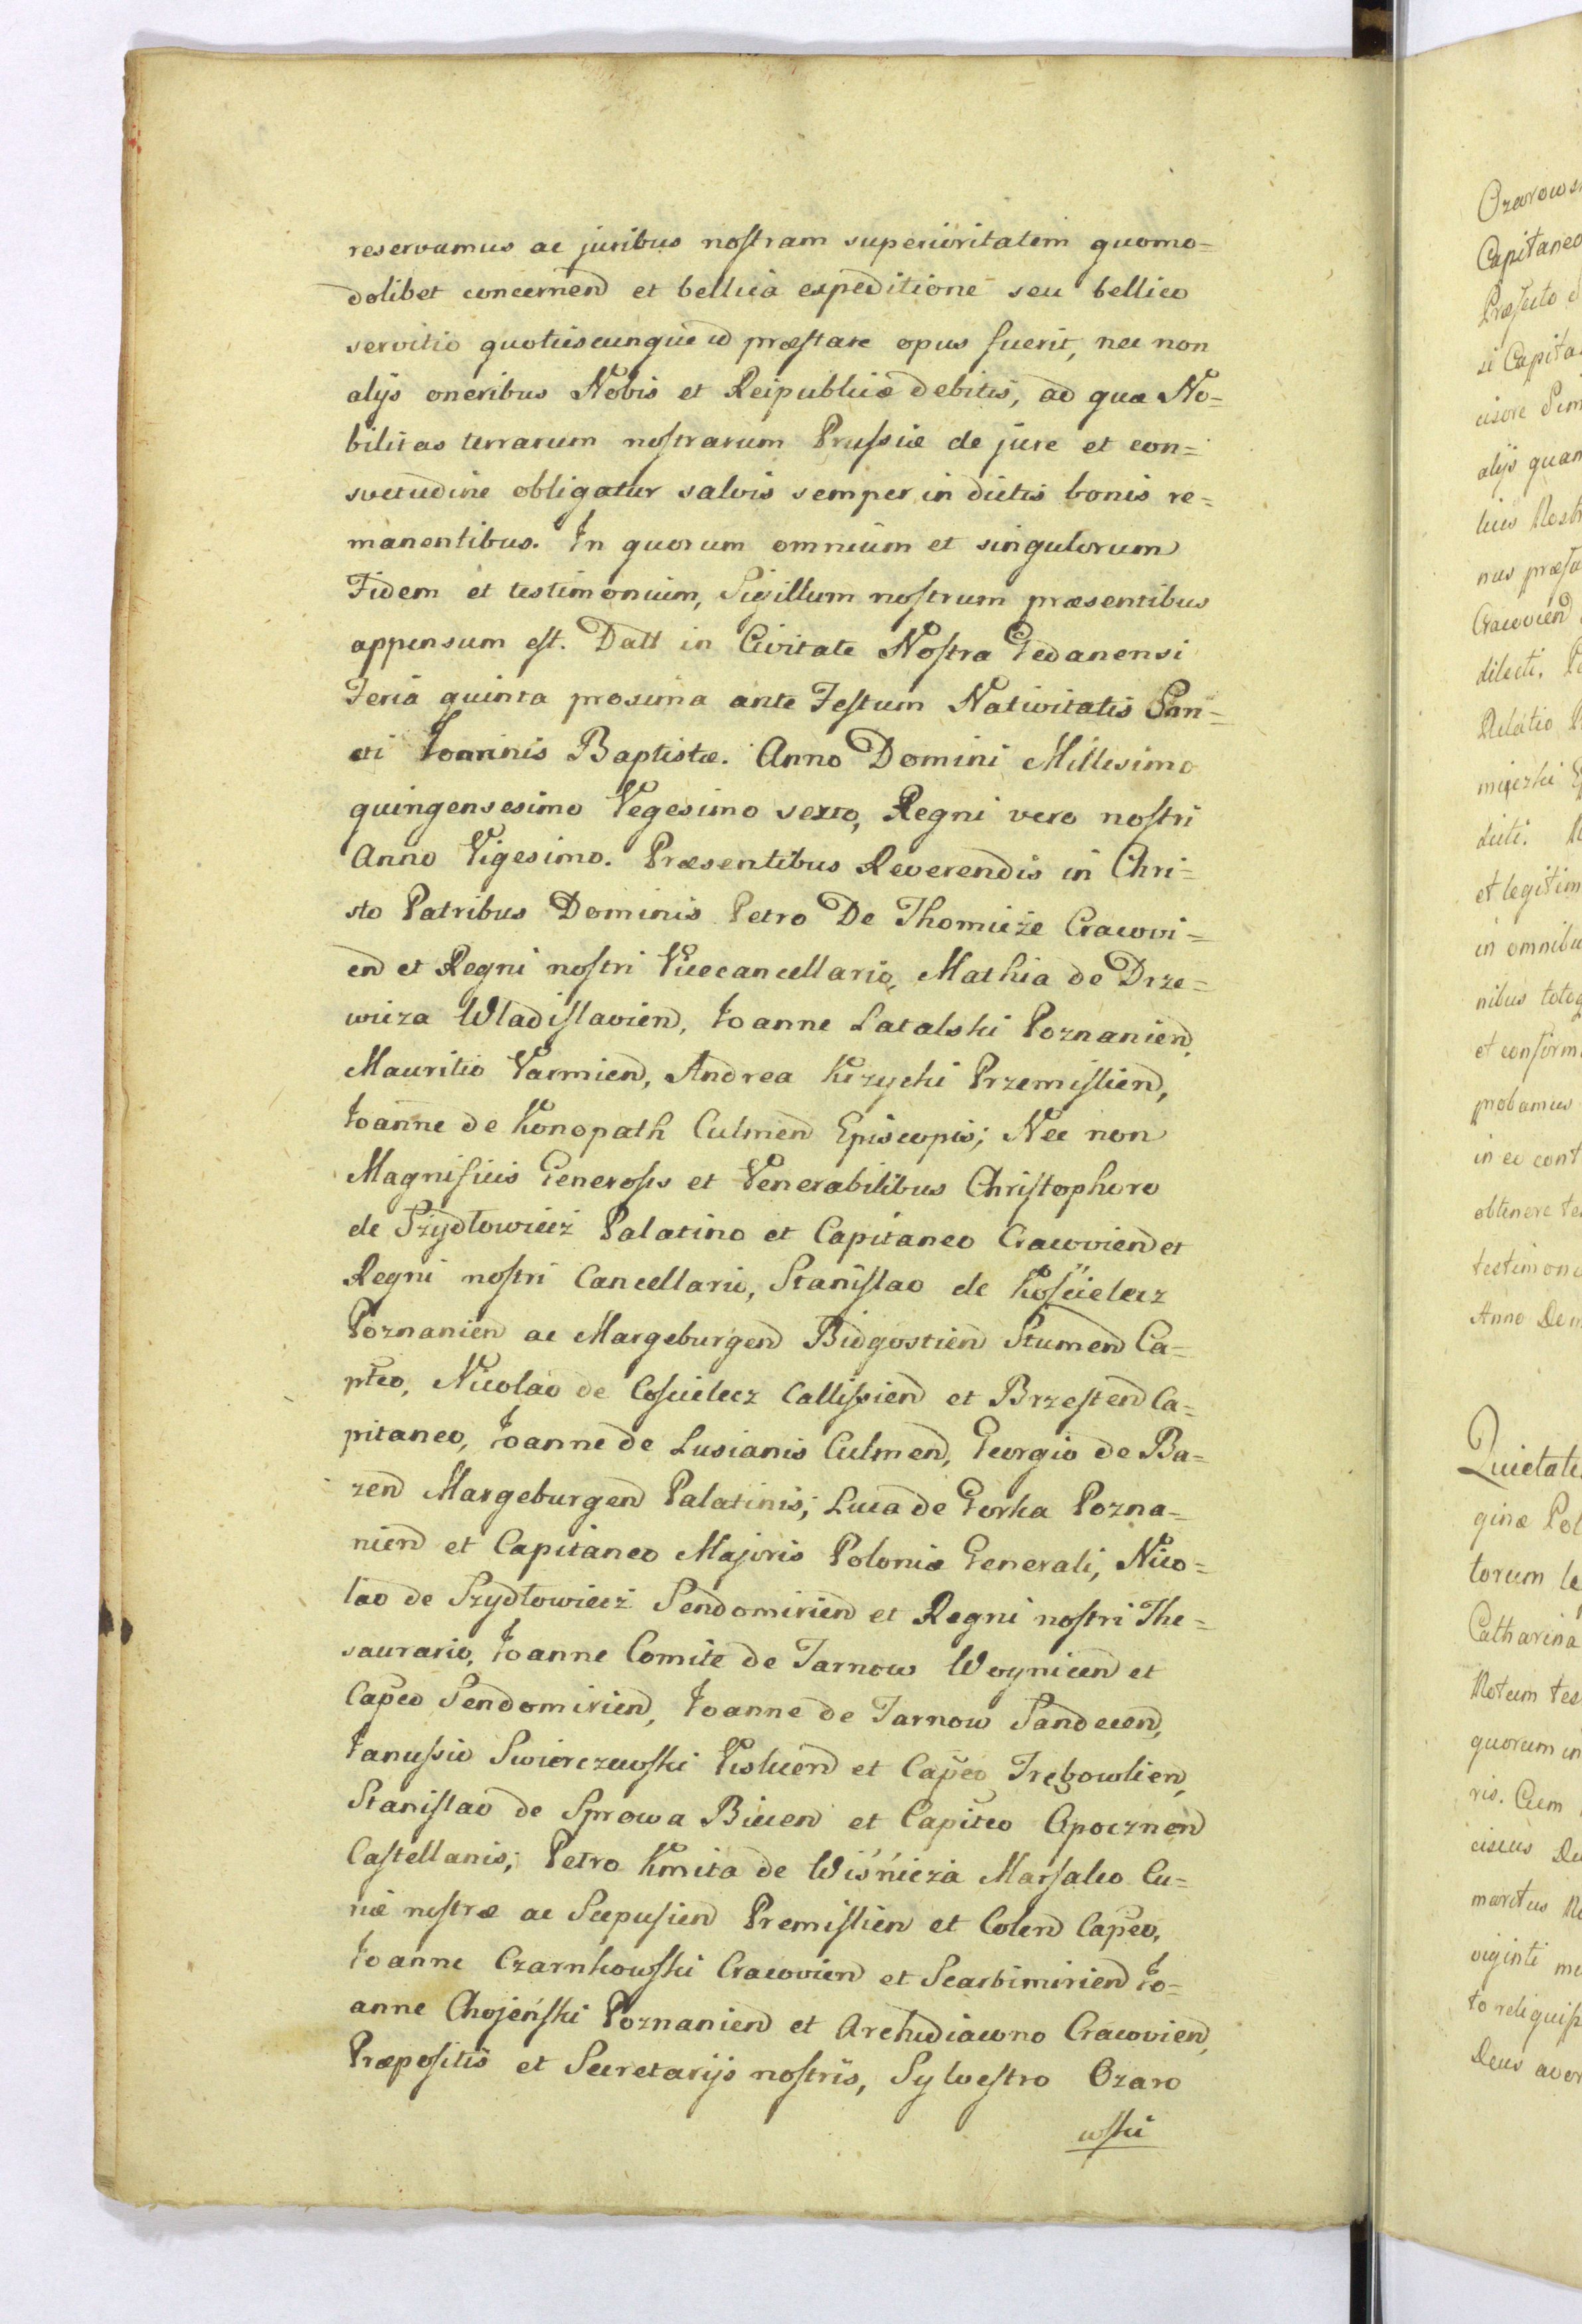 reservamus ac juribus nostram superioritatem quomo=
dolibet concernend et bellica expeditione seu bellico
servitio quotiescunque id præstare opus fuerit, nec non
alijs oneribus Nobis et Reipublicæ debitis, ad quæ No=
bilitas terrarum nostrarum Prussiæ de jure et con=
svetudine obligatur salvis semper in dictis bonis re=
manentibus. In quorum omnium et singulorum
Fidem et testimonium, Sigillum nostrum præsentibus
appensum est. Datt in Civitate Nostra Gedanensi
Feria quinta proxima ante Festum Nativitatis San=
cti Joannis Baptistæ. Anno Domini Millesimo
quingensesimo Vegesimo sexto, Regni vero nostri
Anno Vigesimo. Præsentibus Reverendis in Chri=
sto Patribus Dominis Petro De Thomicze Cracovi=
end et Regni nostri Vicecancellario, Mathia de Drze=
wicza Wladislaviend, Joanne Latalski Poznaniend,
Mauritio Varmiend, Andrea Krzycki Przemisliend,
Joanne de Konopath Culmend Episcopis; Nec non
Magnificis Generosis et Venerabilibus Christophoro
de Szydłowiecz Palatino et Capitaneo Cracoviend et
Regni nostri Cancellario, Stanislao de Kościelecz
Poznanien ac Margeburgend Bidgostiend Stumend Ca=
pteo, Nicolao de Coscielecz Callissiend et Brzestend Ca=
pitaneo, Joanne de Lusianis Culmend, Georgio de Ba=
zend Margeburgend Palatinis; Luca de Gorka Pozna=
niend et Capitaneo Majoris Poloniæ Generali, Nico=
lao de Szydłowiecz Sendomiriend et Regni nostri The=
saurario, Joanne Comite de Tarnow Woynicend et
Capeo Sendomiriend, Joanne de Tarnow Sandecend,
Janussio Swierczewski Visliend et Capeo Trębowlien,
Stanislao de Sprowa Biecend et Capiteo Opocznend
Castellanis; Petro Kmita de Wiśnicza Marsalco Cu=
riæ nostræ ac Scepusiend Premisliend et Colend Capeo,
Joanne Czarnkowski Cracoviend et Scarbimiriend Jo=
anne Chojeński Poznaniend et Archidiacono Cracoviend,
Præpositis et Secretarijs nostris, Sylvestro Ozaro
wski
Capitaneo
si Capita
alijs quam
Cracoviend
dilecti.
Relatio
et legitim
in omnibu
nibus totoq
et confirm
probamus
in eo cont
obtinere te
testimoni
Anno Dom
Quietatio
ginæ Pol
torum le
Catharina
Notum tes
quorum in
ris. Cum
ciscus
maritus
viginti
to reliquiss
Deus aver